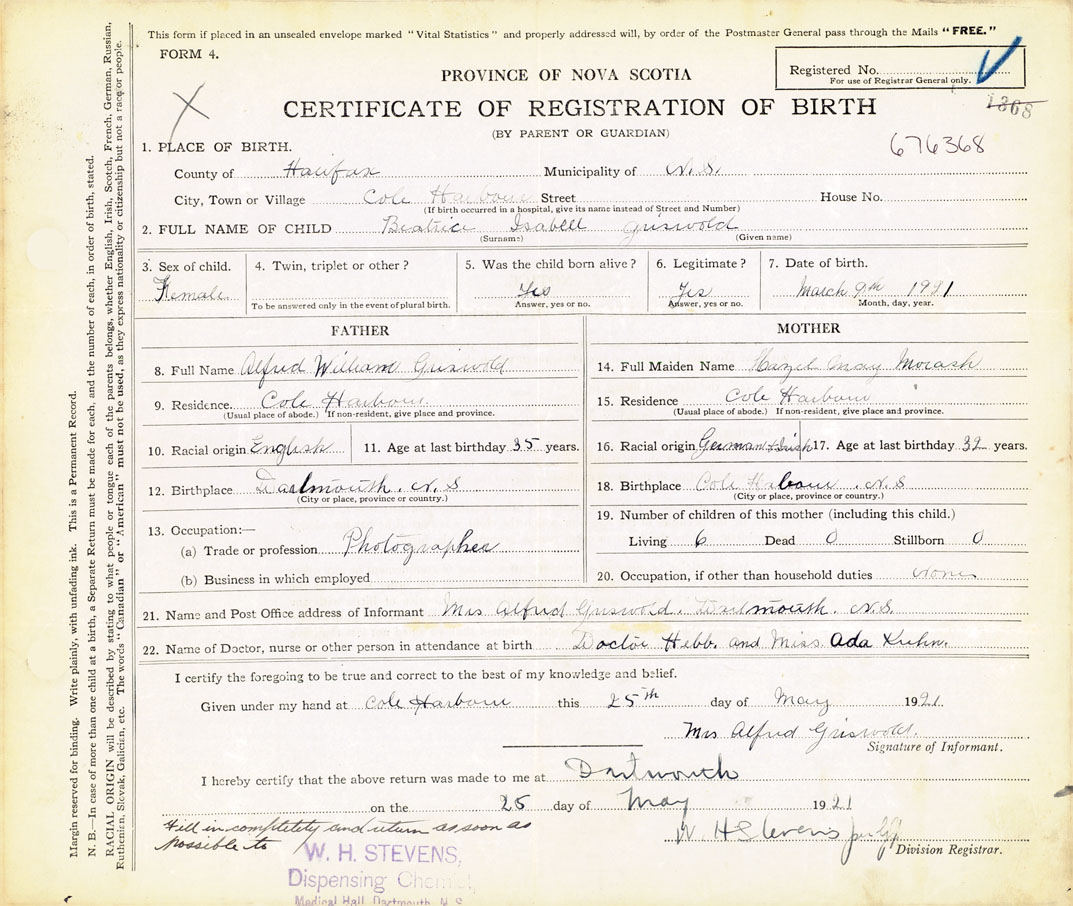 This form if placed in an unsealed envelope marked "Vital Statistics" and properly addressed will, by order of the Postmaster General pass through the Mails "FREE."
FORM 4.
PROVINCE OF NOVA SCOTIA
Registered No.
For use of Registrar General only.
1868
CERTIFICATE OF REGISTRATION OF BIRTH
(BY PARENT OR GUARDIAN)
676368
1. PLACE OF BIRTH.
County of Halifax Municipality of N.S.
City, Town or Village Cole Harbour Street House No.
(If birth occurred in a hospital, give its name instead of Street and Number)
2. FULL NAME OF CHILD Beatrice Isabell Griswold
(Surname) (Given name)
3. Sex of child. 4. Twin, triplet or other? 5. Was the child born alive? 6. Legitimate? 7. Date of birth.
Female Yes Yes March 9th 1921
To be answered only in the event of plural birth. Answer, yes or no. Answer, yes or no. Month, day, year.
FATHER
8. Full Name Alfred William Griswold
9. Residence. Cole Harbour
(Usual place of abode.) If non-resident, give place and province.
10. Racial origin English 11. Age at last birthday 35 years.
12. Birthplace Dartmouth. N.S
(City or place, province or country.)
13. Occupation:—
(a) Trade or profession Photographer
(b) Business in which employed
MOTHER
14. Full Maiden Name Hazel May Morash
15. Residence Cole Harbour "
(Usual place of abode.) If non-resident, give place and province.
16. Racial origin German & Irish 17. Age at last birthday 32 years.
18. Birthplace Cole Habour. N.S
(City or place, province or country.)
19. Number of children of this mother (including this child.)
Living 6 Dead 0 Stillborn 0
20. Occupation, if other than household duties None
21. Name and Post Office address of Informant Mrs Alfred Griswold. Dartmouth. N.S.
22. Name of Doctor, nurse or other person in attendance at birth Doctor Hebb. and Miss. Ada Kuhn.
I certify the foregoing to be true and correct to the best of my knowledge and belief.
Given under my hand at Cole Harbour this 25th day of May 1921.
Mrs Alfred Griswold.
Signature of Informant.
I hereby certify that the above return was made to me at Dartmouth
on the 25 day of May 1921
W. H Stevens
Division Registrar.
Fill in completely and return as soon as
possible to
W. H. STEVENS,
Dispensing Chemist,
Medical Hall, Dartmouth, N.S.
Margin reserved for binding. Write plainly, with unfading ink. This is a Permanent Record.
N. B.—In case of more than one child at a birth, a Separate Return must be made for each, and the number of each, in order of birth, stated.
RACIAL ORIGIN will be described by stating to what people or tongue each of the parents belongs, whether English, Irish, Scotch, French, German, Russian,
Ruthenian, Slovak, Galician, etc. The words "Canadian" or "American" must not be used, as they express nationality or citizenship but not a race or people.